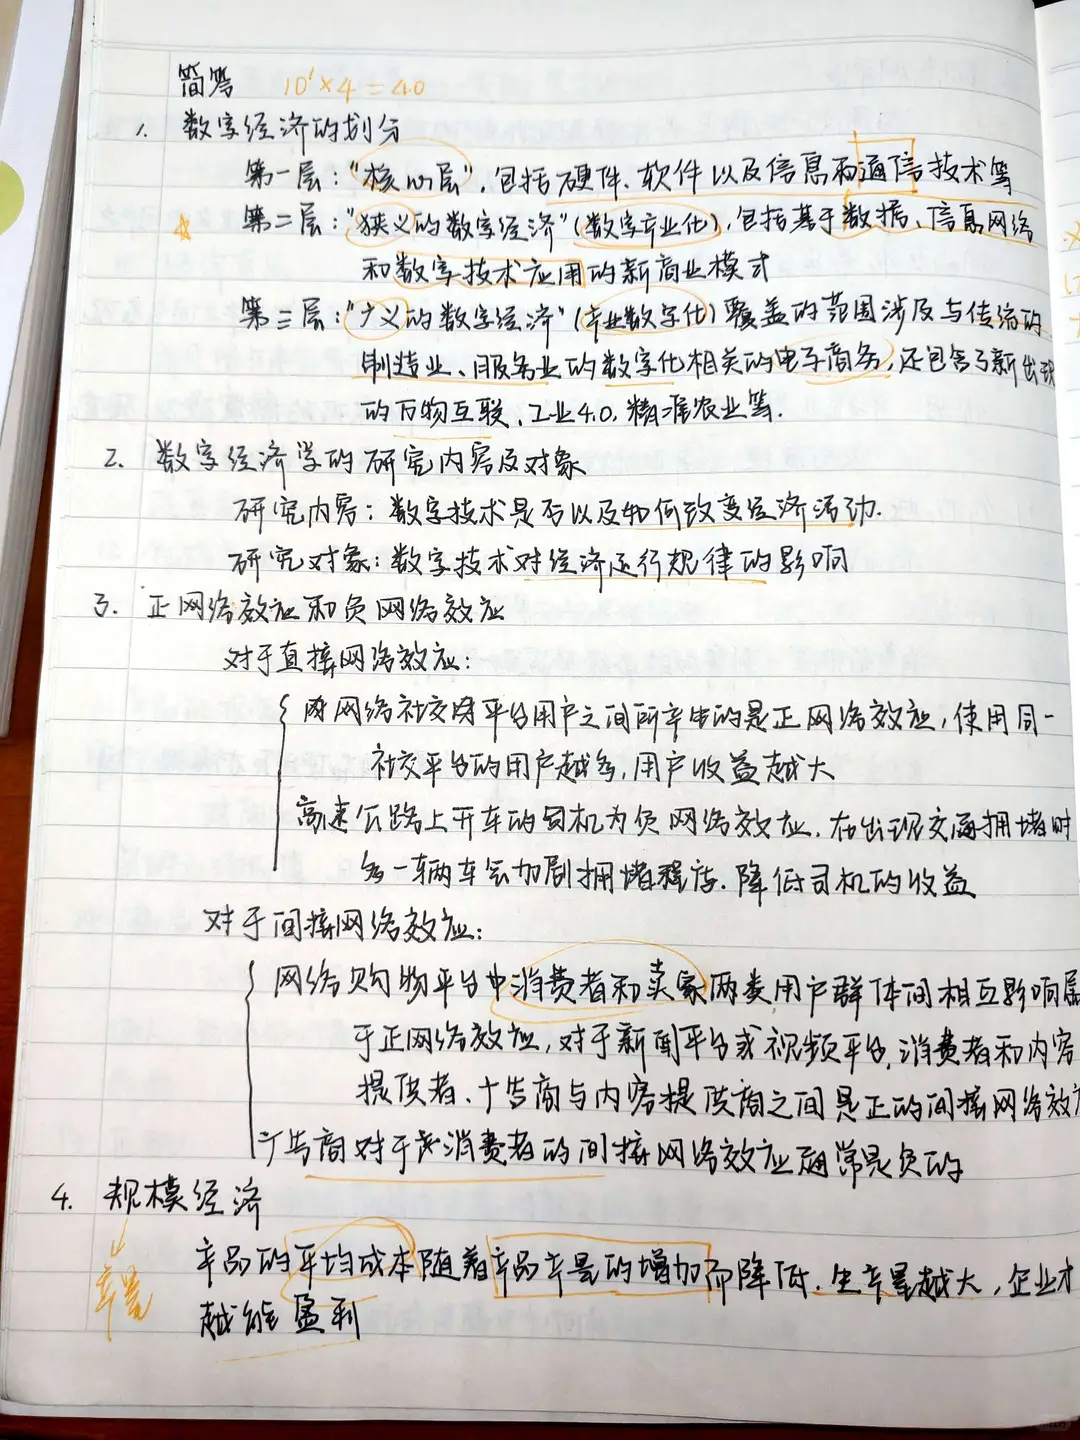 简答 10'×4=40
1. 数字经济的划分
第一层:"核心层",包括硬件、软件以及信息和通信技术等
☆ 第二层:"狭义的数字经济"(数字产业化),包括基于数据、信息网络
和数字技术应用的新商业模式
第三层:"广义的数字经济"(产业数字化)覆盖的范围涉及与传统的
制造业、服务业的数字化相关的电子商务,还包含了新出现
的万物互联、工业4.0,精准农业等.
2. 数字经济学的研究内容及对象
研究内容:数字技术是否以及如何改变经济活动.
研究对象:数字技术对经济运行规律的影响
3. 正网络效应和负网络效应
对于直接网络效应:
网络社交平台用户之间所产生的是正网络效应,使用同一
社交平台的用户越多,用户收益越大
高速公路上开车的司机为负网络效应.在出现交通拥堵时
多一辆车会加剧拥堵程度.降低司机的收益
对于间接网络效应:
网络购物平台中消费者和卖家两类用户群体间相互影响属
于正网络效应,对于新闻平台或视频平台,消费者和内容
提供者、广告商与内容提供商之间是正的间接网络效应
广告商对于消费者的间接网络效应通常是负的
4. 规模经济
产品的平均成本随着产品产量的增加而降低.生产量越大,企业才
产量
越能盈利